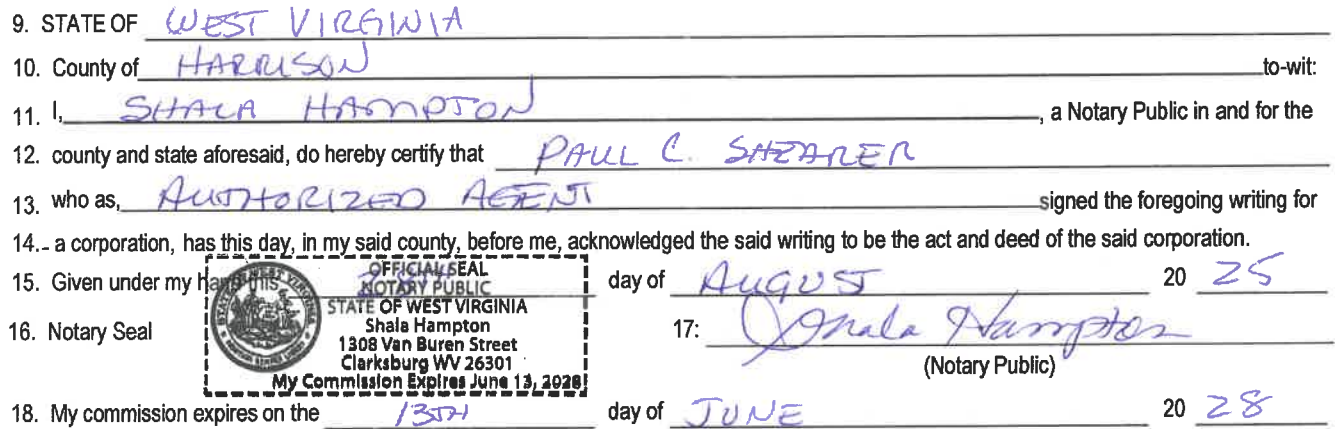 9. STATE OF WEST VIRGINIA
10. County of HARRISON to-wit:
11. I, SHALA HAMPTON, a Notary Public in and for the
12. county and state aforesaid, do hereby certify that PAUL C. SHEARER
13. who as, AUTHORIZED AGENT signed the foregoing writing for
14. - a corporation, has this day, in my said county, before me, acknowledged the said writing to be the act and deed of the said corporation.
15. Given under my hand this 28TH day of AUGUST 20 25
OFFICIAL SEAL
NOTARY PUBLIC
STATE OF WEST VIRGINIA
Shala Hampton
1308 Van Buren Street
Clarksburg WV 26301
My Commission Expires June 13, 2028
16. Notary Seal 17: Shala Hampton
(Notary Public)
18. My commission expires on the 13TH day of JUNE 20 28